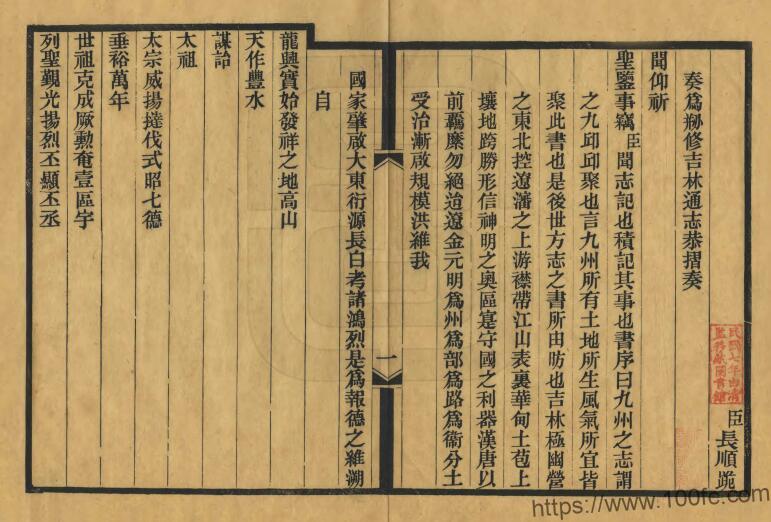 臣長順跪
奏為刱修吉林通志恭摺奏
聞仰祈
聖鑒事竊臣聞志記也積記其事也書序曰九州之志謂
之九邱邱聚也言九州所有土地所生風氣所宜皆
聚此書也是後世方志之書所由昉也吉林極幽營
之東北控遼瀋之上游襟帶江山表裏華甸土苞上
壤地跨勝形信神明之奧區寔守國之利器漢唐以
前羈縻勿絕迨遼金元明為州為部為路為衞分土
受治漸啟規模洪維我
國家肇啟大東衍源長白考諸鴻烈是為報德之維溯
自
龍興實始發祥之地高山
天作豐水
謀詒
太祖
太宗威揚撻伐式昭七德
垂裕萬年
世祖克成厥勳奄壹區宇
列聖覲光揚烈丕顯丕丞
一
https://www.100fc.com